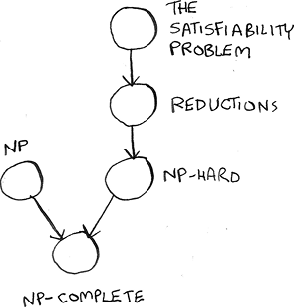 THE
SATISFIABILITY
PROBLEM
REDUCTIONS
NP
NP-HARD
NP-COMPLETE